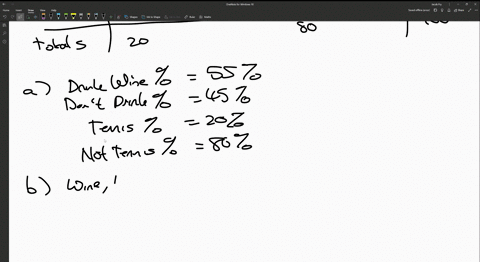 80
totals 20
a) Drink Wine % = 55%
Don't Drink % = 45%
Tennis % = 20%
Not Tennis % = 80%
b) Wine,